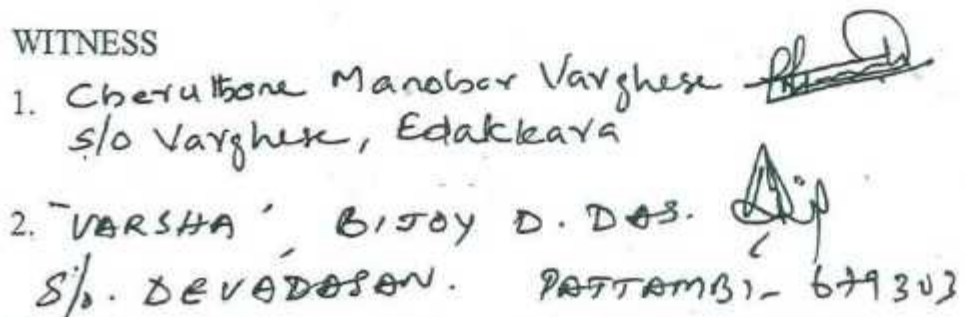 WITNESS
1. Cheruthone Manohar Varghese
S/o Varghese, Edakkara
2. "VARSHA' BIJOY D. DAS.
S/o. DEVADASAN. PATTAMBI- 679303